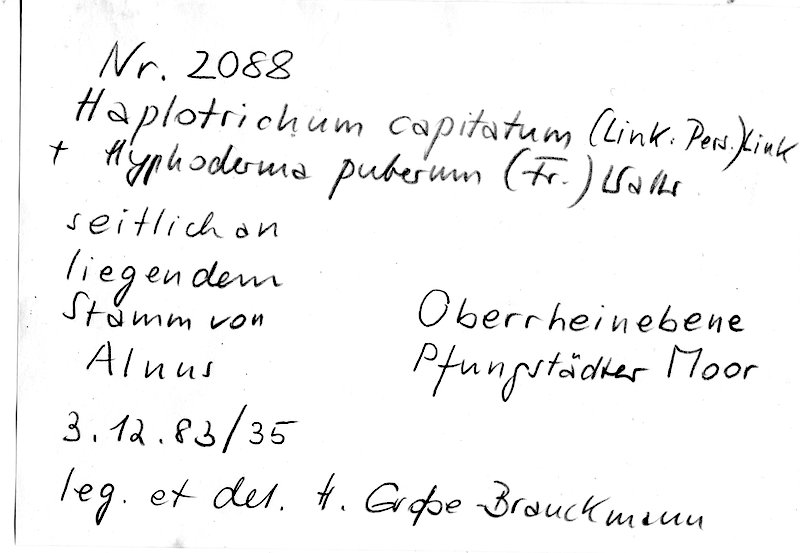 Nr. 2088
Haplotrichum capitatum (Link: Pers.) Link
+ Hyphoderma puberum (Fr.) Wallr
seitlich an
liegendem
Stamm von
Alnus
Oberrheinebene
Pfungstädter Moor
3.12.83/35
leg. et det. H. Große-Brauckmann